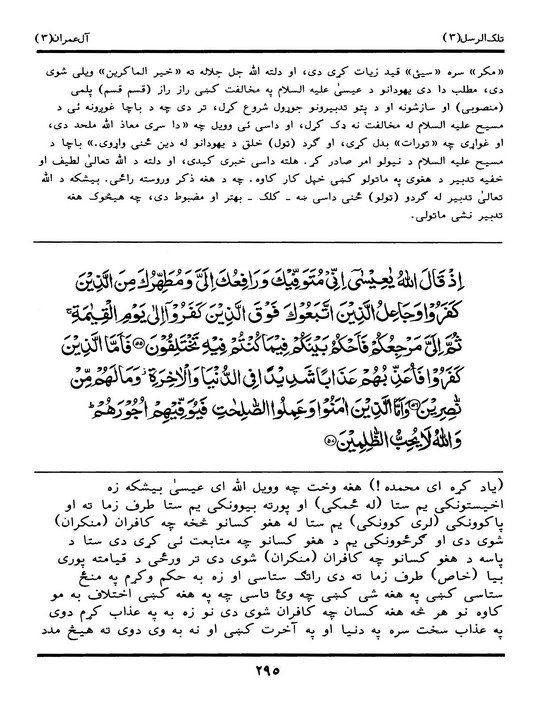 تلک الرسل(۳) آل عمران(۳)
«مکر» سره «سیئ» قید زیات کړی دی، او دلته الله جل جلاله ته «خیر الماکرین» ویلی شوی
دی، مطلب دا دی یهودانو د عیسیٰ علیه السلام په مخالفت کښی راز راز (قسم قسم) پلمی
(منصوبی) او سازشونه او د پټو تدبیرونو جوړول شروع کړل، تر دی چه د باچا غوږونه ئی د
مسیح علیه السلام له مخالفت نه ډک کړل، او داسی ئی وویل چه «دا سړی معاذ الله ملحد دی،
او غواړی چه «تورات» بدل کړی، او ګرد (ټول) خلق د یهودانو له دین څنی واړوی.» باچا د
مسیح علیه السلام د نیولو امر صادر کړ. هلته داسی خبری کیدی، او دلته د الله تعالیٰ لطیف او
خفیه تدبیر د هغوی په ماتولو کښی خپل کار کاوه. چه د هغه ذکر وروسته راځی. بیشکه د الله
تعالیٰ تدبیر له ګردو (ټولو) څنی داسی ښه ـ کلک ـ بهتر او مضبوط دی، چه هیڅوک هغه
تدبیر نشی ماتولی.
اِذْ قَالَ اللهُ یٰعِیْسٰۤی اِنِّیْ مُتَوَفِّیْكَ وَرَافِعُكَ اِلَیَّ وَمُطَهِّرُكَ مِنَ الَّذِیْنَ
كَفَرُوْا وَجَاعِلُ الَّذِیْنَ اتَّبَعُوْكَ فَوْقَ الَّذِیْنَ كَفَرُوْۤا اِلٰی یَوْمِ الْقِیٰمَةِ ۚ
ثُمَّ اِلَیَّ مَرْجِعُكُمْ فَاَحْكُمُ بَیْنَكُمْ فِیْمَا كُنْتُمْ فِیْهِ تَخْتَلِفُوْنَ ﴿۵۵﴾ فَاَمَّا الَّذِیْنَ
كَفَرُوْا فَاُعَذِّبُهُمْ عَذَابًا شَدِیْدًا فِی الدُّنْیَا وَالْاٰخِرَةِ ؗ وَمَا لَهُمْ مِّنْ
نّٰصِرِیْنَ ﴿۵۶﴾ وَاَمَّا الَّذِیْنَ اٰمَنُوْا وَعَمِلُوا الصّٰلِحٰتِ فَیُوَفِّیْهِمْ اُجُوْرَهُمْ ؕ
وَاللهُ لَا یُحِبُّ الظّٰلِمِیْنَ ﴿۵۷﴾
(یاد کړه ای محمده !) هغه وخت چه وویل الله ای عیسیٰ بیشکه زه
اخیستونکی یم ستا (له ځمکی) او پورته بیوونکی یم ستا طرف زما ته او
پاکوونکی (لری کوونکی) یم ستا له هغو کسانو څخه چه کافران (منکران)
شوی دی او ګرځوونکی یم د هغو کسانو چه متابعت ئی کړی دی ستا د
پاسه د هغو کسانو چه کافران (منکران) شوی دی تر ورځی د قیامته پوری
بیا (خاص) طرف زما ته دی راتګ ستاسی او زه به حکم وکړم په منځ
ستاسی کښی په هغه شی کښی چه وئ تاسی چه په هغه کښی اختلاف به مو
کاوه نو هر څه هغه کسان چه کافران شوی دی نو زه به په عذاب کړم دوی
په عذاب سخت سره په دنیا او په آخرت کښی او نه به وی دوی ته هیڅ مدد
۲۹۵